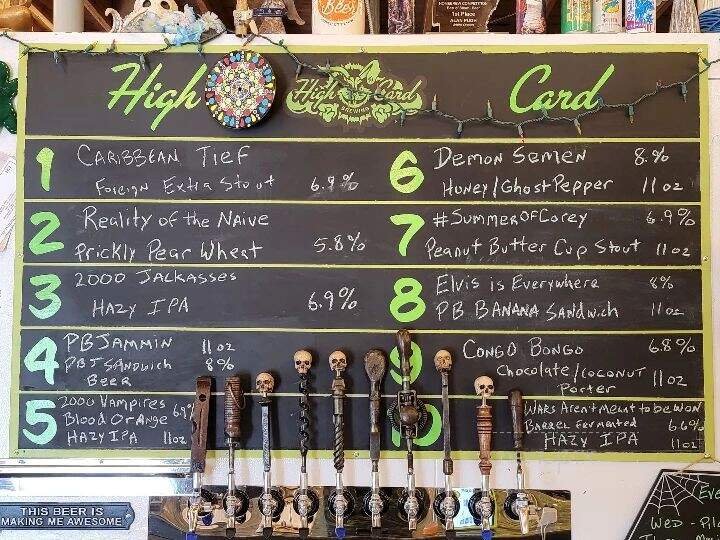 Beer
1st Place
High
High Card
BREWING
Card
1
CARIBBEAN TIEF
Foreign Extra Stout 6.9%
2
Reality of the Naive
Prickly Pear Wheat 5.8%
3
2000 JACKASSES
HAZY IPA 6.9%
4
PB JAMMIN 11oz
PBJ SANDWICH 8%
BEER
5
2000 VAMPIRES
Blood Orange 6.9%
HAZY IPA 11oz
6
DEMON SEMEN 8.%
HONEY/GHOST PEPPER 11oz
7
#SUMMEROFCOREY 6.9%
Peanut Butter Cup Stout 11oz
8
ELVIS is EVERYWHERE 8%
PB BANANA SANDWICH 11oz
9
CONGO BONGO 6.8%
Chocolate/COCONUT
PORTER 11oz
10
WARS AREN'T MEANT to be WON
BARREL FERMENTED 6.6%
HAZY IPA 11oz
THIS BEER IS
MAKING ME AWESOME
WED -